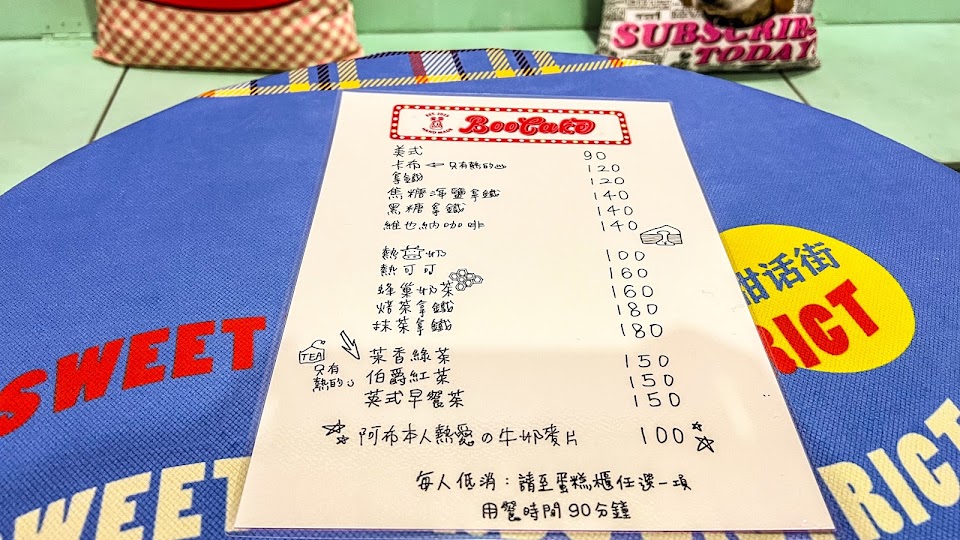 SUBSCRIBE
TODAY
EST. 2022
HAND MADE
BooCake
美式 90
卡布 ← 只有熱的 120
拿鐵 120
焦糖海鹽拿鐵 140
黑糖拿鐵 140
維也納咖啡 140
熱奶 100
熱可可 160
蜂巢奶茶 160
焙茶拿鐵 180
抹茶拿鐵 180
TEA
只有
熱的
茉香綠茶 150
伯爵紅茶 150
英式早餐茶 150
阿布本人熱愛の牛奶麥片 100
每人低消：請至蛋糕櫃任選一項
用餐時間90分鐘
SWEET
甜话街
RICT
SWEET
RICT